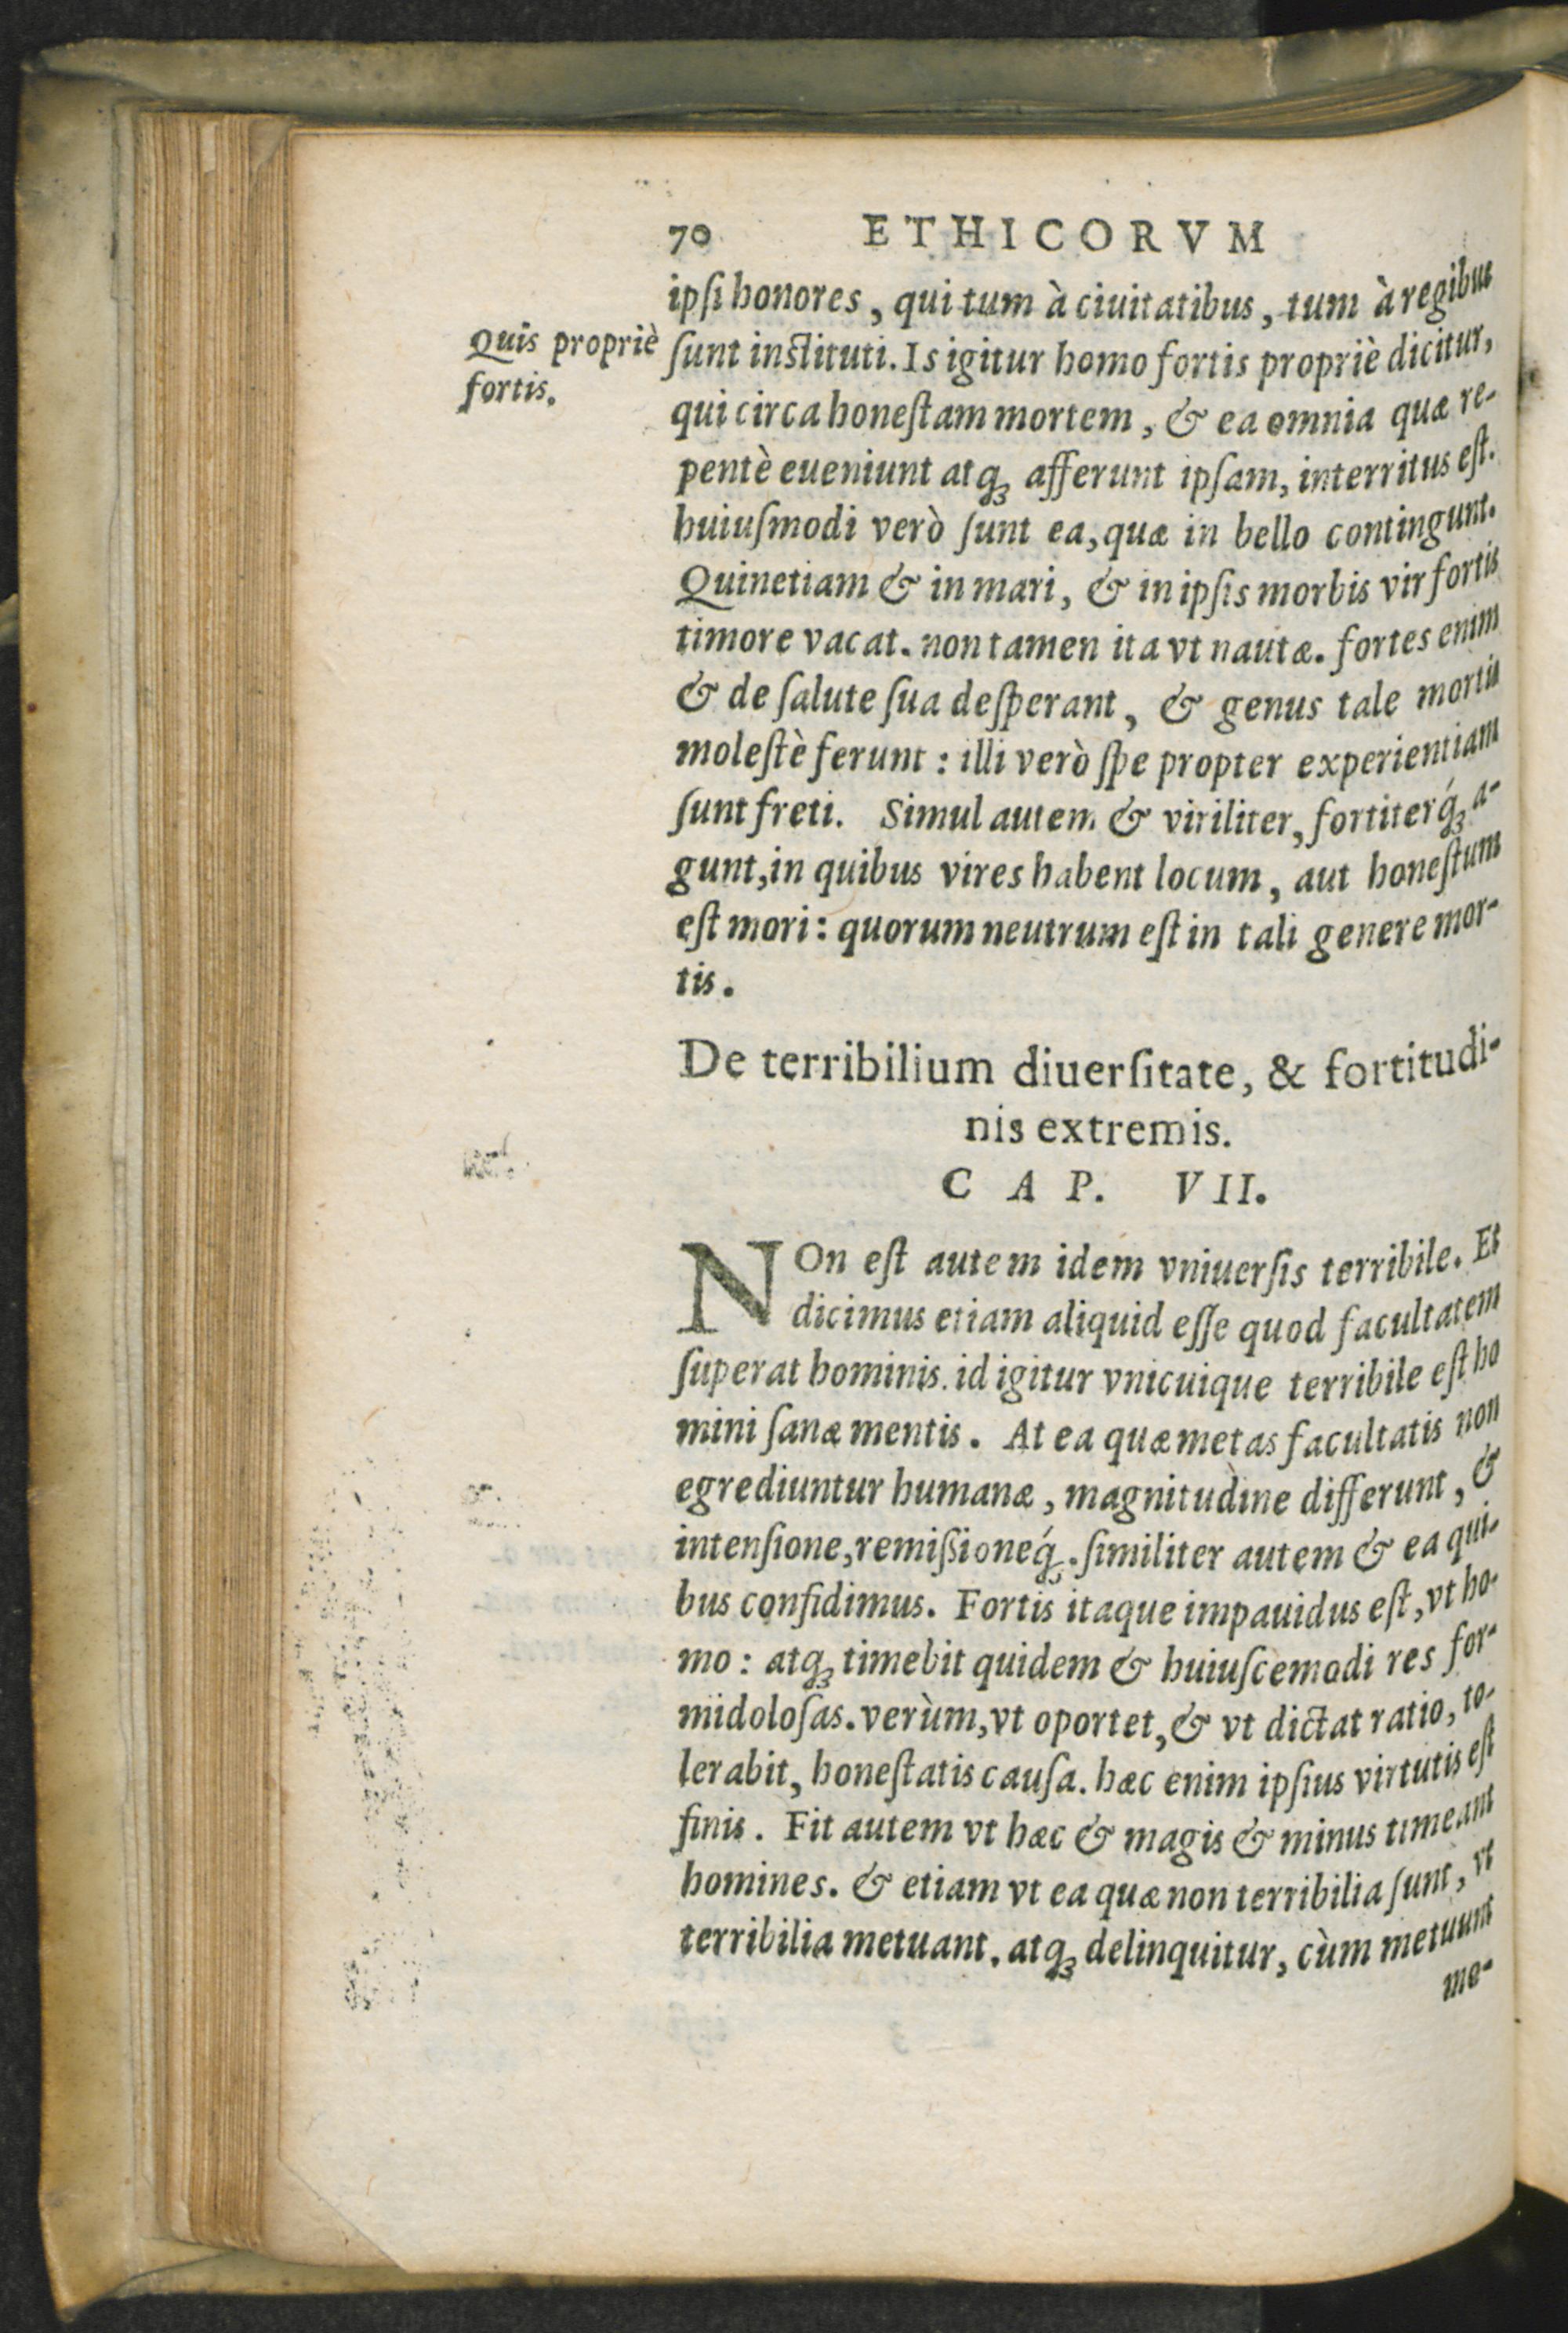 70 ETHICORVM
ipſi honores, qui tum à ciuitatibus, tum à regibus
Quis propriè
fortis.
ſunt inſtituti. Is igitur homo fortis propriè dicitur,
qui circa honeſtam mortem, & ea omnia quæ re-
pentè eueniunt atqꝫ afferunt ipſam, interritus eſt.
huiuſmodi verò ſunt ea, quæ in bello contingunt.
Quinetiam & in mari, & in ipſis morbis vir fortis
timore vacat. non tamen ita vt nautæ. fortes enim
& de ſalute ſua deſperant, & genus tale mortis
moleſtè ferunt: illi verò ſpe propter experientiam
ſunt freti. Simul autem & viriliter, fortiterq́ꝫ a-
gunt, in quibus vires habent locum, aut honeſtum
eſt mori: quorum neutrum eſt in tali genere mor-
tis.
De terribilium diuerſitate, & fortitudi-
nis extremis.
CAP. VII.
NOn eſt autem idem vniuerſis terribile. Et
dicimus etiam aliquid eſſe quod facultatem
ſuperat hominis. id igitur vnicuique terribile eſt ho
mini ſanæ mentis. At ea quæ metas facultatis non
egrediuntur humanæ, magnitudine differunt, &
intenſione, remißioneq́ꝫ. ſimiliter autem & ea qui-
bus confidimus. Fortis itaque impauidus eſt, vt ho-
mo: atqꝫ timebit quidem & huiuſcemodi res for-
midoloſas. verùm, vt oportet, & vt dictat ratio, to-
lerabit, honeſtatis cauſa. hæc enim ipſius virtutis eſt
finis. Fit autem vt hæc & magis & minus timeant
homines. & etiam vt ea quæ non terribilia ſunt, vt
terribilia metuant. atqꝫ delinquitur, cùm metuunt
me-